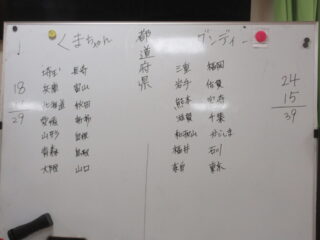 くまちゃん
都道府県
ゲンディー
埼玉 長野
兵庫 富山
北海道 秋田
愛媛 京都
山形 島根
青森 鳥取
大阪 山口
三重 福岡
岩手 佐賀
熊本
滋賀 千葉
和歌山
福井 石川
奈良 東京
18
29
24
15
39